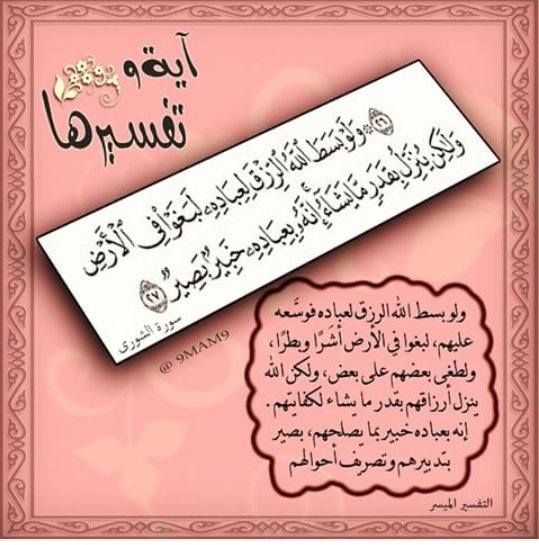 آية و
تفسيرها
﴿٢٦﴾ ۞ وَلَوْ بَسَطَ ٱللَّهُ ٱلرِّزْقَ لِعِبَادِهِۦ لَبَغَوْا۟ فِى ٱلْأَرْضِ
وَلَـٰكِن يُنَزِّلُ بِقَدَرٍ مَّا يَشَآءُ ۚ إِنَّهُۥ بِعِبَادِهِۦ خَبِيرٌۢ بَصِيرٌ ﴿٢٧﴾
سورة الشورى
@ 9MAM9
ولو بسط الله الرزق لعباده فوسَّعه
عليهم، لبغوا في الأرض أشَرًا وبطرًا،
ولطغى بعضهم على بعض، ولكن الله
ينزل أرزاقهم بقدر ما يشاء لكفايتهم .
إنه بعباده خبير بما يصلحهم، بصير
بتدبيرهم وتصريف أحوالهم
التفسير الميسر